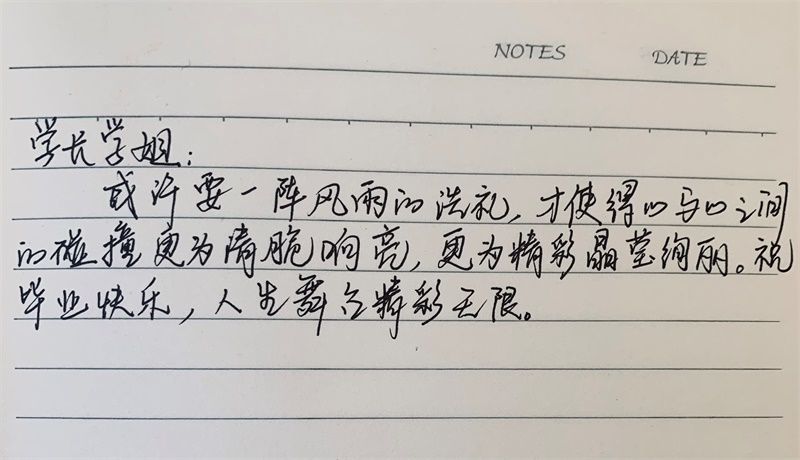 NOTES DATE
学长学姐：
或许要一阵风雨的洗礼，才使得心与心之间
的碰撞更为清脆响亮，更为精彩晶莹绚丽。祝
毕业快乐，人生舞台精彩无限。